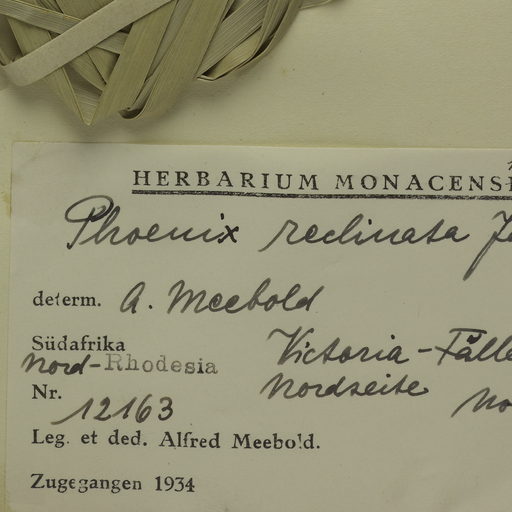 HERBARIUM MONACENS
Phoenix reclinata
determ. A. Meebold
Südafrika Victoria-Fälle
Nord-Rhodesia Nordseite
Nr. 12163
Leg. et ded. Alfred Meebold.
Zugegangen 1934